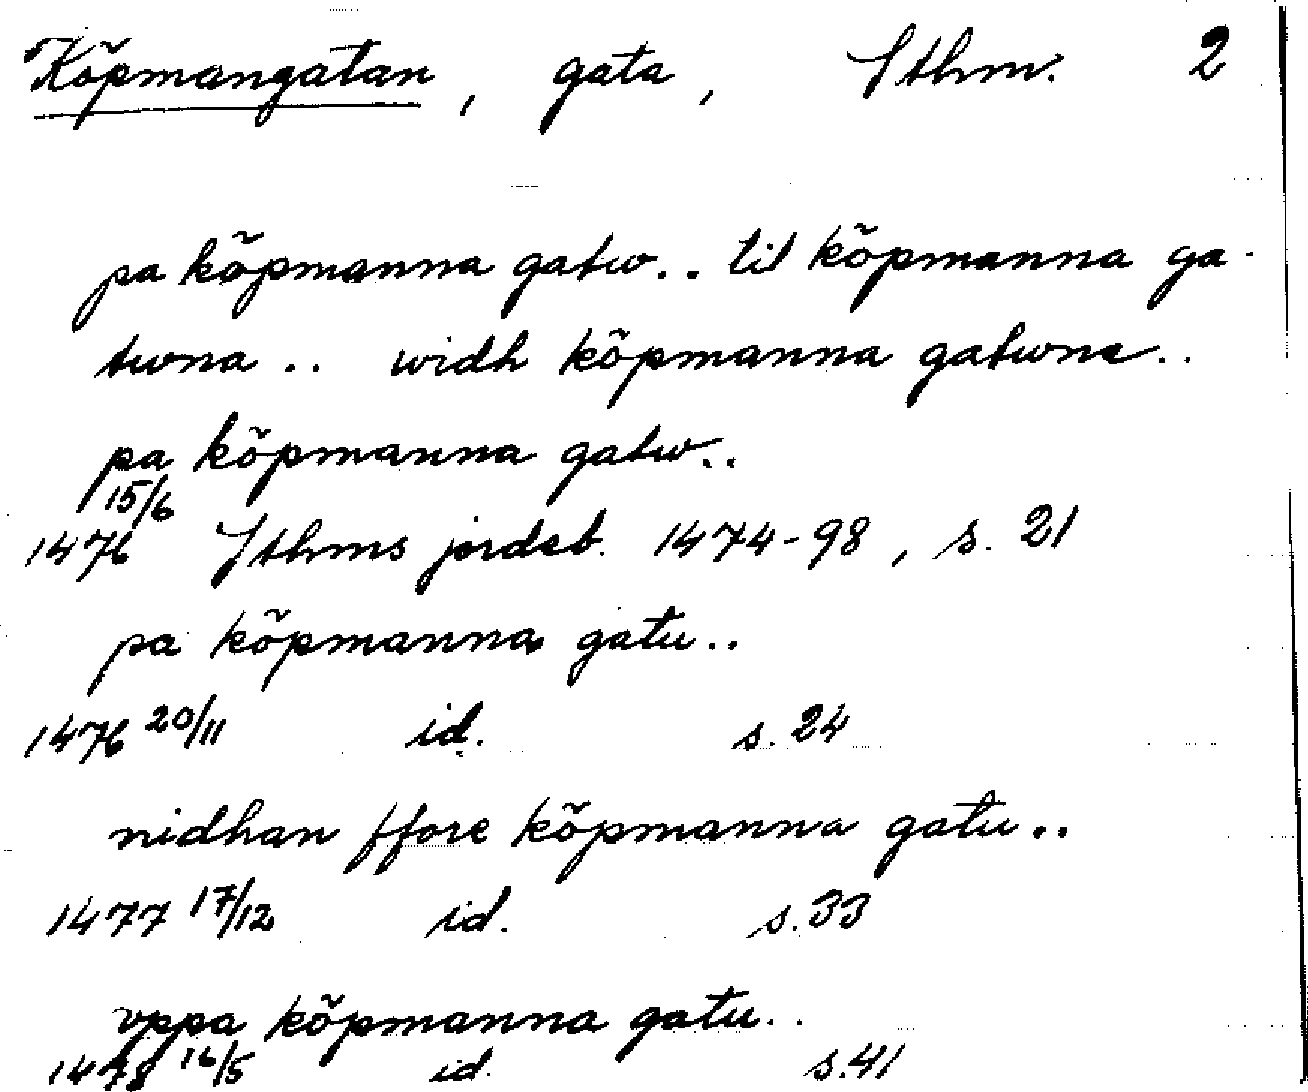 Köpmangatan, gata, Sthm. 2
pa köpmanna gatw.. til köpmanna ga-
twna .. widh köpmanna gatwne..
pa köpmanna gatw..
15/6
1476 Sthms jordeb. 1474-98, s. 21
pa köpmanna gatu..
1476 20/11 id. s. 24
nidhan ffore köpmanna gatu..
1477 17/12 id. s. 33
vppa köpmanna gatu..
1478 16/5 id. s. 41